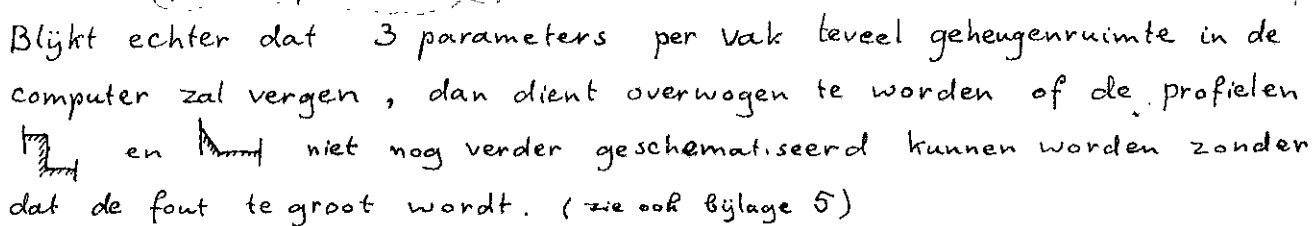 Blijkt echter dat 3 parameters per vak teveel geheugenruimte in de
computer zal vergen, dan dient overwogen te worden of de profielen
en niet nog verder geschematiseerd kunnen worden zonder
dat de fout te groot wordt. (zie ook bijlage 5)